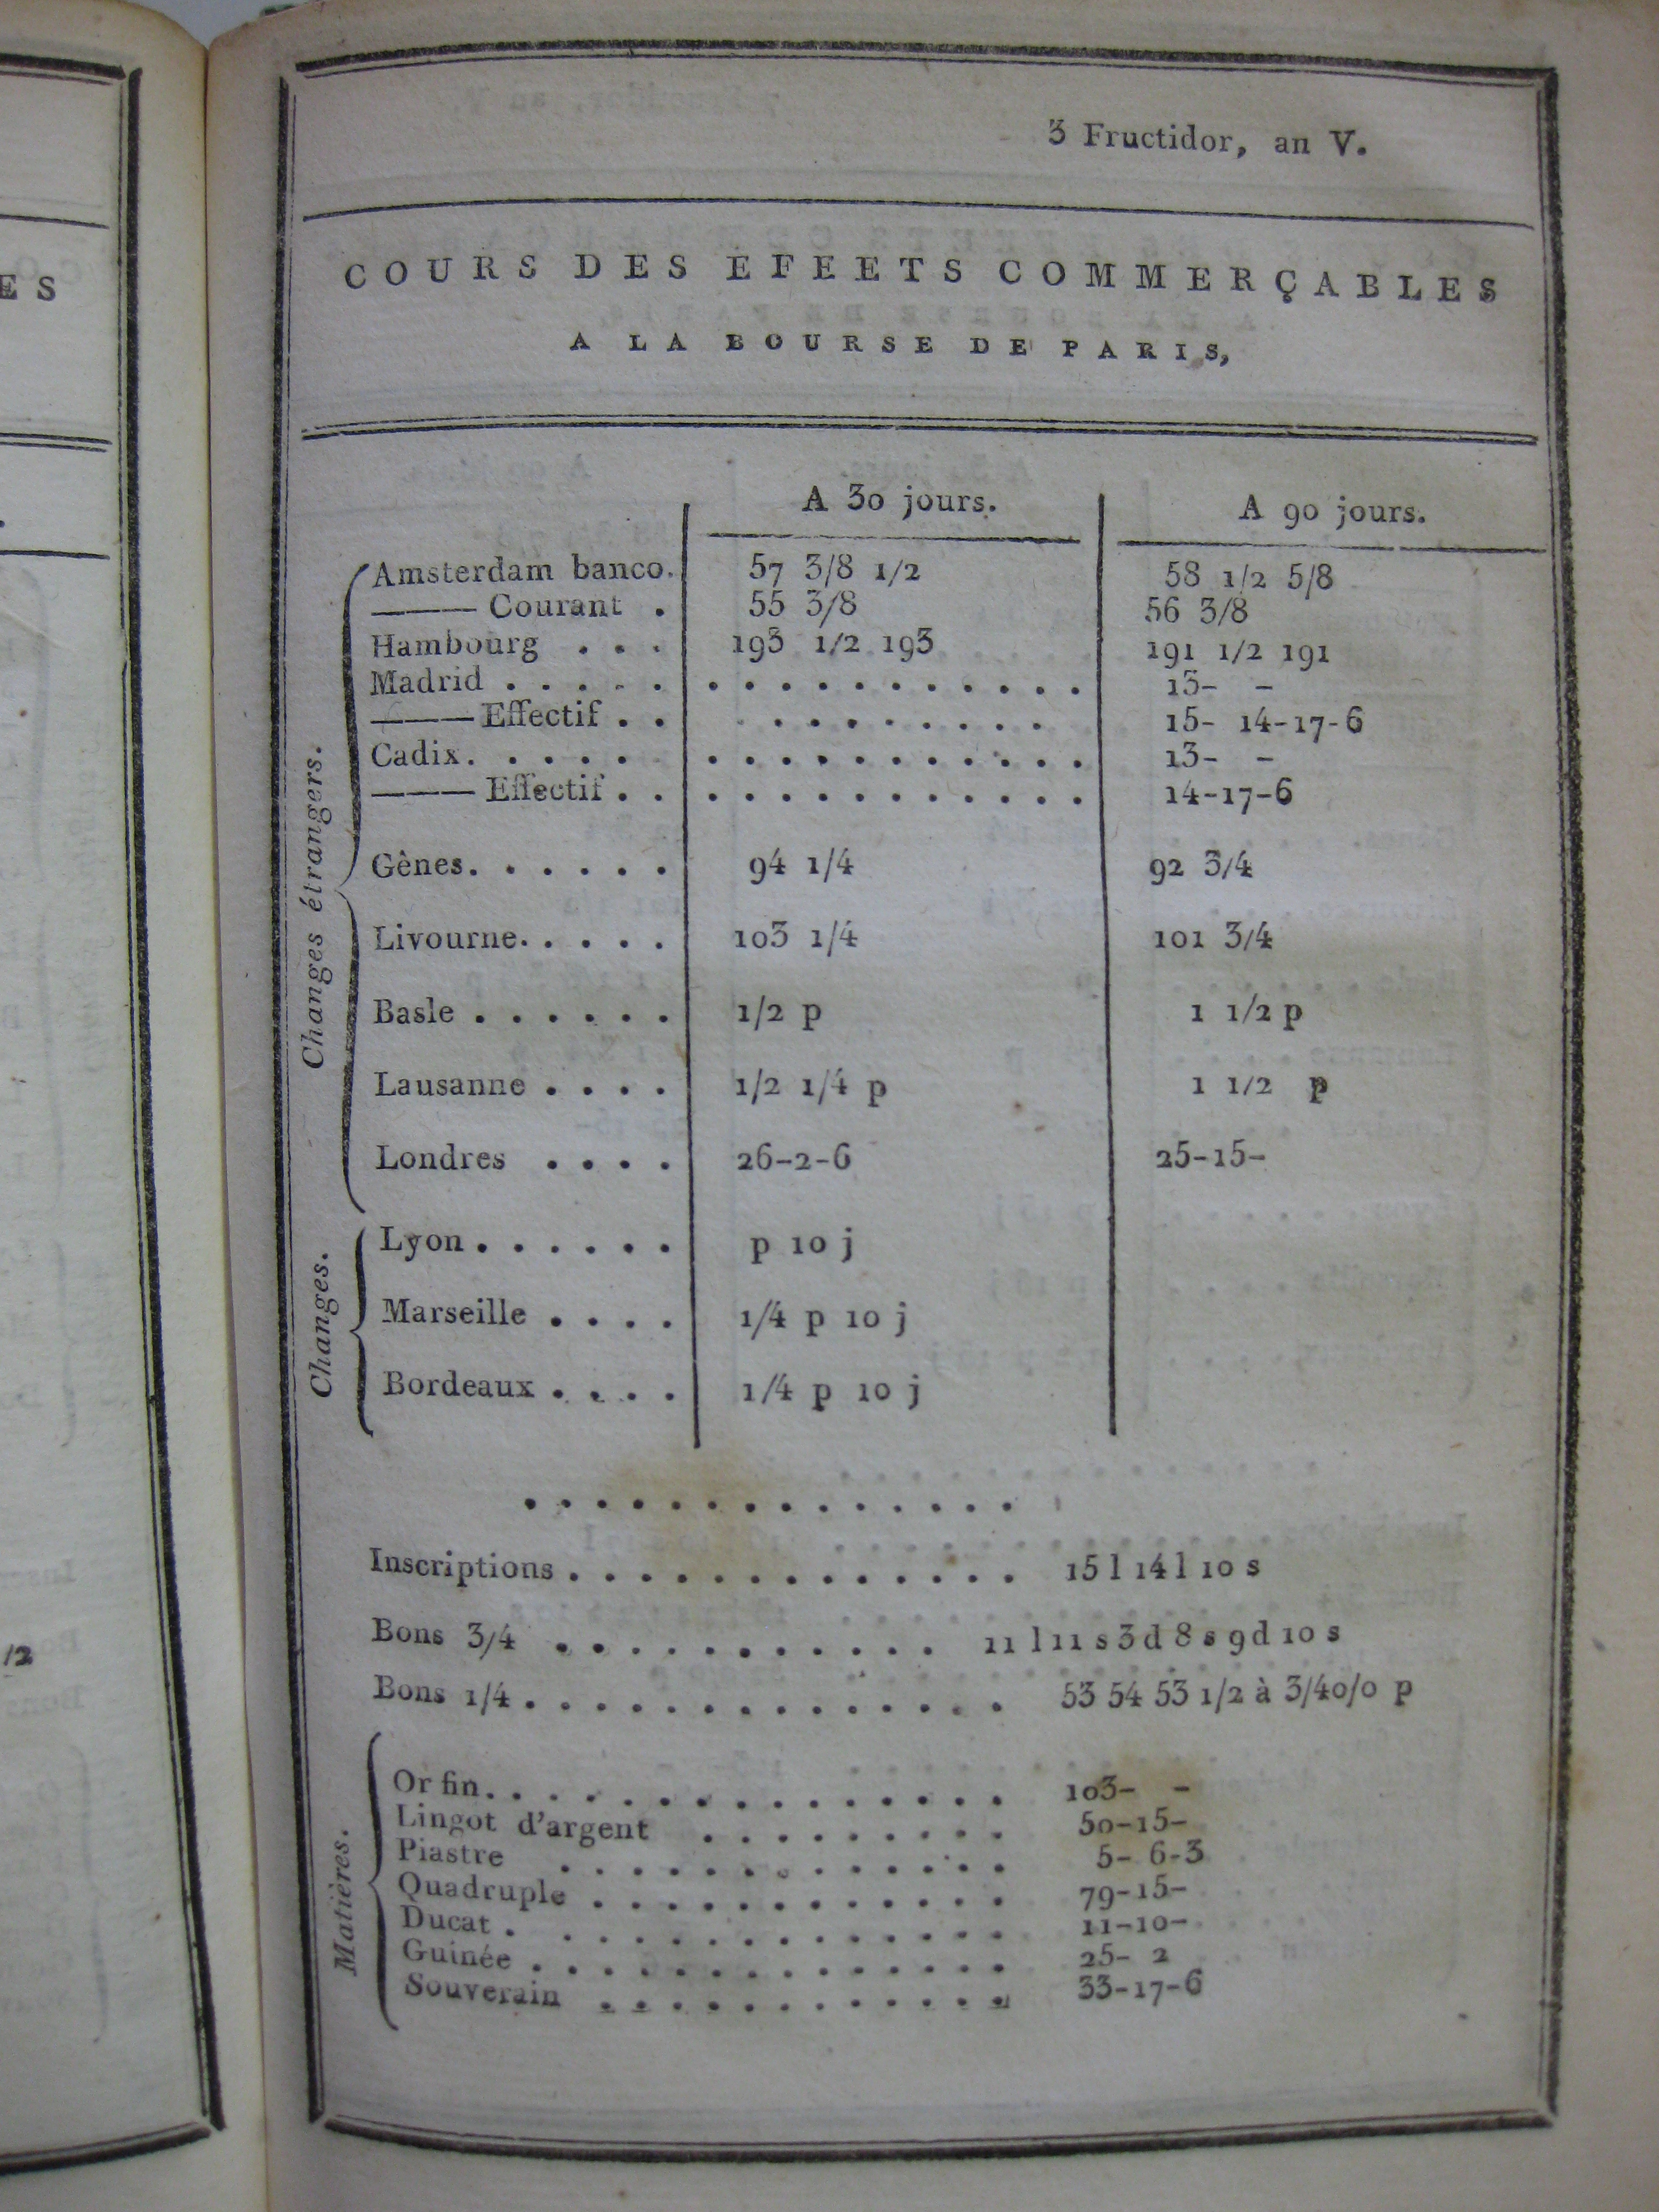 ES
/2
3 Fructidor, an V.
COURS DES EFEETS COMMERÇABLES
A LA BOURSE DE PARIS,
A 30 jours. A 90 jours.
Changes étrangers.
Amsterdam banco. 57 3/8 1/2 58 1/2 5/8
——— Courant . 55 3/8 56 3/8
Hambourg . . . 193 1/2 193 191 1/2 191
Madrid . . . . . . . . . . . . . . . . 15- -
——— Effectif . . . . . . . . . . . 15- 14-17-6
Cadix. . . . . . . . . . . . . . . . . 13- -
——— Effectif . . . . . . . . . . . . . 14-17-6
Gênes. . . . . . 94 1/4 92 3/4
Livourne. . . . . 103 1/4 101 3/4
Basle . . . . . . 1/2 p 1 1/2 p
Lausanne . . . . 1/2 1/4 p 1 1/2 p
Londres . . . . 26-2-6 25-15-
Changes.
Lyon . . . . . . p 10 j
Marseille . . . . 1/4 p 10 j
Bordeaux . . . . 1/4 p 10 j
. . . . . . . . . . . . . .
Inscriptions . . . . . . . . . . . . . 15 l 14 l 10 s
Bons 3/4 . . . . . . . . . . . 11 l 11 s 3 d 8 s 9 d 10 s
Bons 1/4 . . . . . . . . . . . . . . 53 54 53 1/2 à 3/4 0/0 p
Matières.
Or fin. . . . . . . . . . . . . . . 103- -
Lingot d'argent . . . . . . . . . 50-15-
Piastre . . . . . . . . . . . . . 5- 6-3
Quadruple . . . . . . . . . . . . 79-15-
Ducat . . . . . . . . . . . . . . 11-10-
Guinée . . . . . . . . . . . . . . 25- 2
Souverain . . . . . . . . . . . . 33-17-6